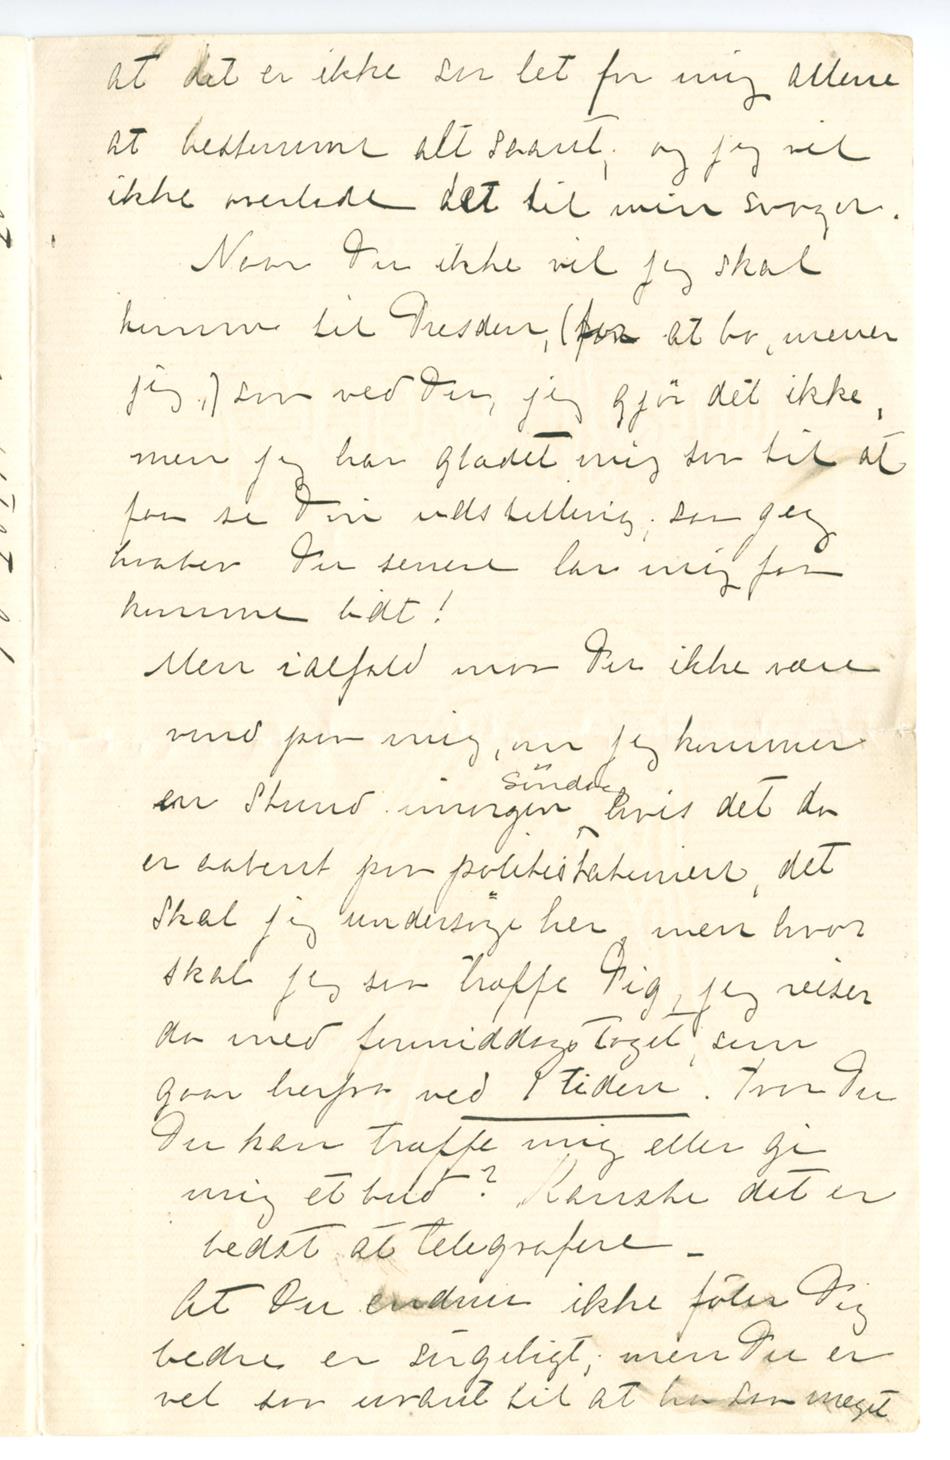 at det er ikke saa let for mig allene
at bestemme alt saant; og jeg vil
ikke overlade det til min svoger.
Naar Du ikke vil jeg skal
komme til Dresden, (for at bo, mener
jeg,) saa ved Du, jeg gjør det ikke,
men jeg har glædet mig saa til at
faa se Din udstilling; saa jeg
haaber Du senere lar mig faa
komme lidt!
Men ialfald maa Du ikke være
vred paa mig, om jeg kommer
en stund imorgen Söndag, hvis det da
er aabent paa politistationen, det
skal jeg undersöge her, men hvor
skal jeg saa træffe Dig, jeg reiser
da med formiddagstoget, som
gaar herfra ved 1 tiden. Tror Du
Du kan træffe mig eller gi
mig et bud? Kanske det er
bedst at telegrafere –
At Du endnu ikke föler Dig
bedre er sörgeligt; men Du er
vel saa uvant til at ha saa meget